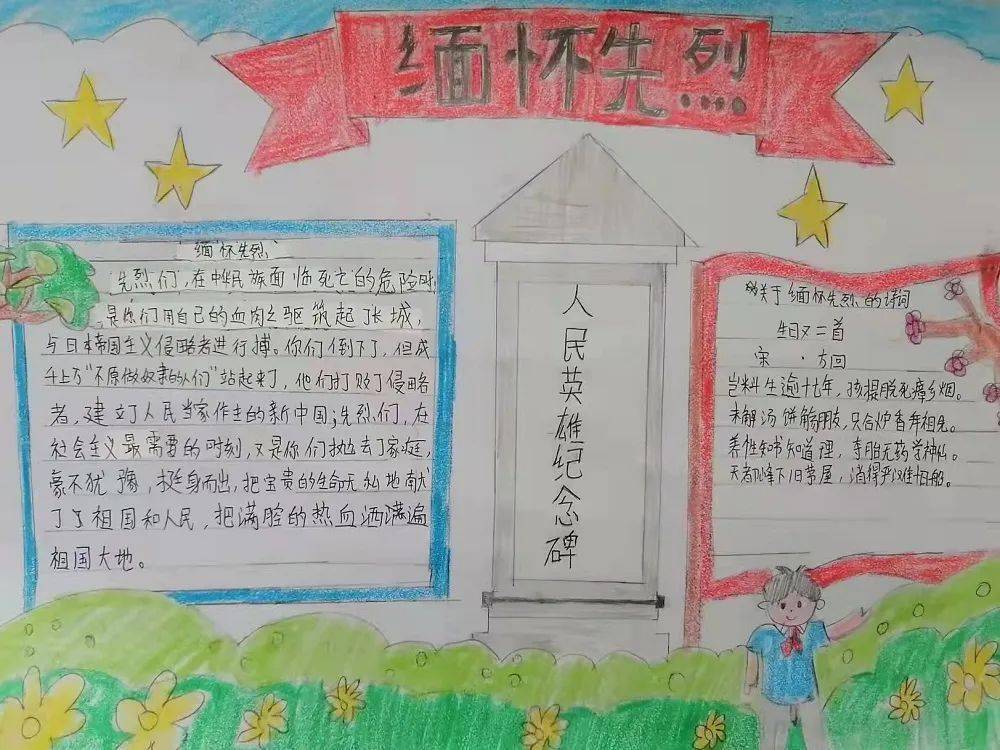 缅怀先烈
缅怀先烈
先烈们,在中华民族面临死亡的危险时,
是你们用自己的血肉之驱筑起长城,
与日本帝国主义侵略者进行搏。你们倒下了,但成
千上万"不愿做奴隶的人们"站起来了,他们打败了侵略
者,建立了人民当家作主的新中国;先烈们,在
社会主义最需要的时刻,又是你们抛去了家庭,
豪不犹豫,挺身而出,把宝贵的生命无私地献
了了祖国和人民,把满腔的热血洒满遍
祖国大地。
人民英雄纪念碑
关于缅怀先烈的诗词
生日又二首
宋·方回
岂料生逾十七年,孩提脱死瘴乡烟。
未解汤饼觞朋友,只合炉香奉祖先。
养性知书知道理,寿胎无药学神仙。
天都峰下旧茅屋,消得严滩